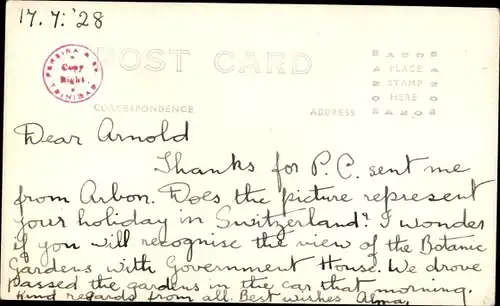 17.7.'28
PEREIRA & Co.
Copy
Right.
TRINIDAD
POST CARD
CORRESPONDENCE
ADDRESS
AZO
PLACE
STAMP
HERE
AZO
Dear Arnold
Thanks for P.C. sent me
from Arbon. Does the picture represent
your holiday in Switzerland? I wonder
if you will recognise the view of the Botanic
Gardens with Government House. We drove
passed the gardens in the car that morning.
Kind regards from all. Best wishes Alma.